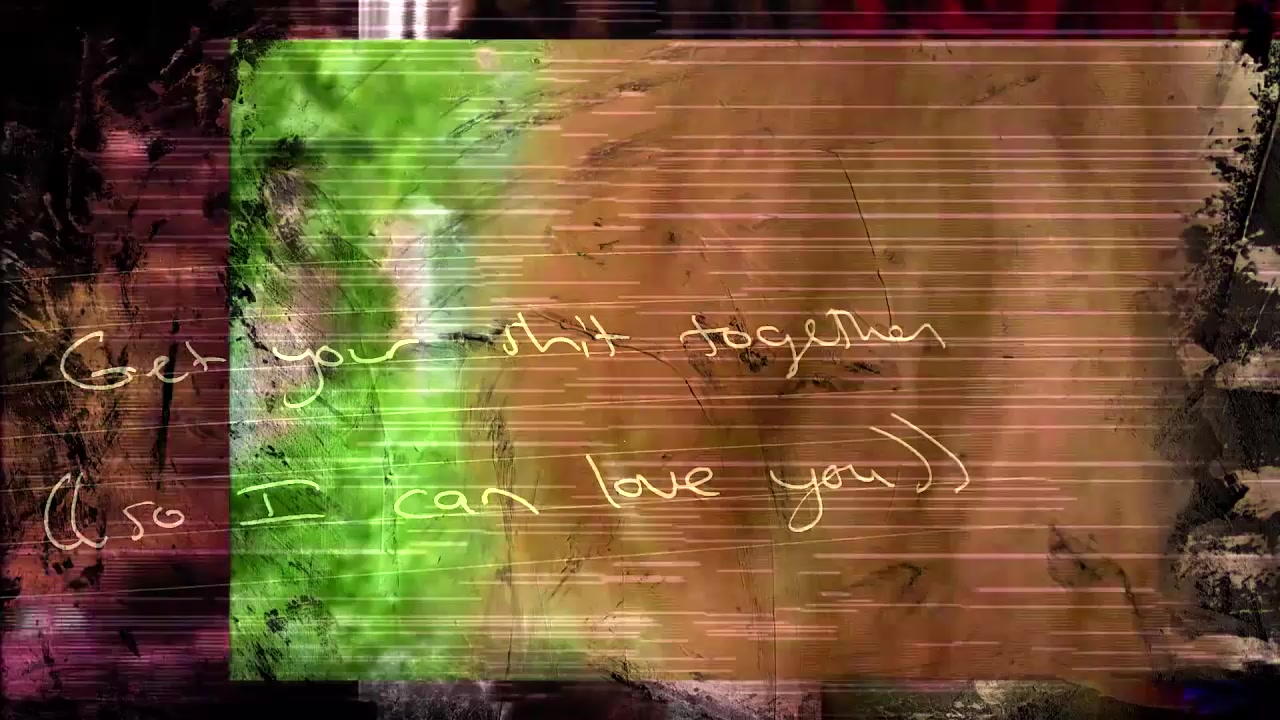 Get your shit together
((so I can love you))